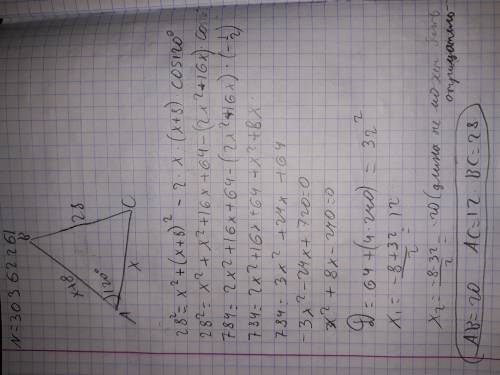 N=30362261
B
x+8
28
120°
A
x
C
28² = x² + (x+8)² - 2 · x · (x+8) · cos120°
28² = x² + x² + 16x + 64 - (2x² + 16x) cos
784 = 2x² + 16x + 64 - (2x² + 16x) · (-1/2)
784 = 2x² + 16x + 64 + x² + 8x
784 = 3x² + 24x + 64
-3x² - 24x + 720 = 0
x² + 8x - 240 = 0
D = 64 + (4 · 240) = 32²
x₁ = (-8+32)/2 = 12
x₂ = (-8-32)/2 = -20 (длина не может быть
отрицательно
AB = 20 AC = 12 BC = 28